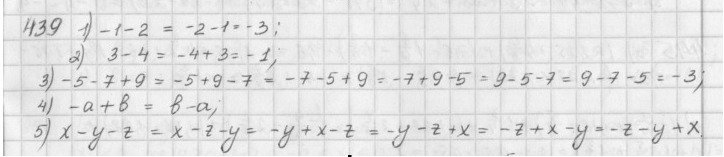 439 1) -1-2 = -2-1 = -3;
2) 3-4 = -4+3 = -1;
3) -5-7+9 = -5+9-7 = -7-5+9 = -7+9-5 = 9-5-7 = 9-7-5 = -3;
4) -a+b = b-a;
5) x-y-z = x-z-y = -y+x-z = -y-z+x = -z+x-y = -z-y+x